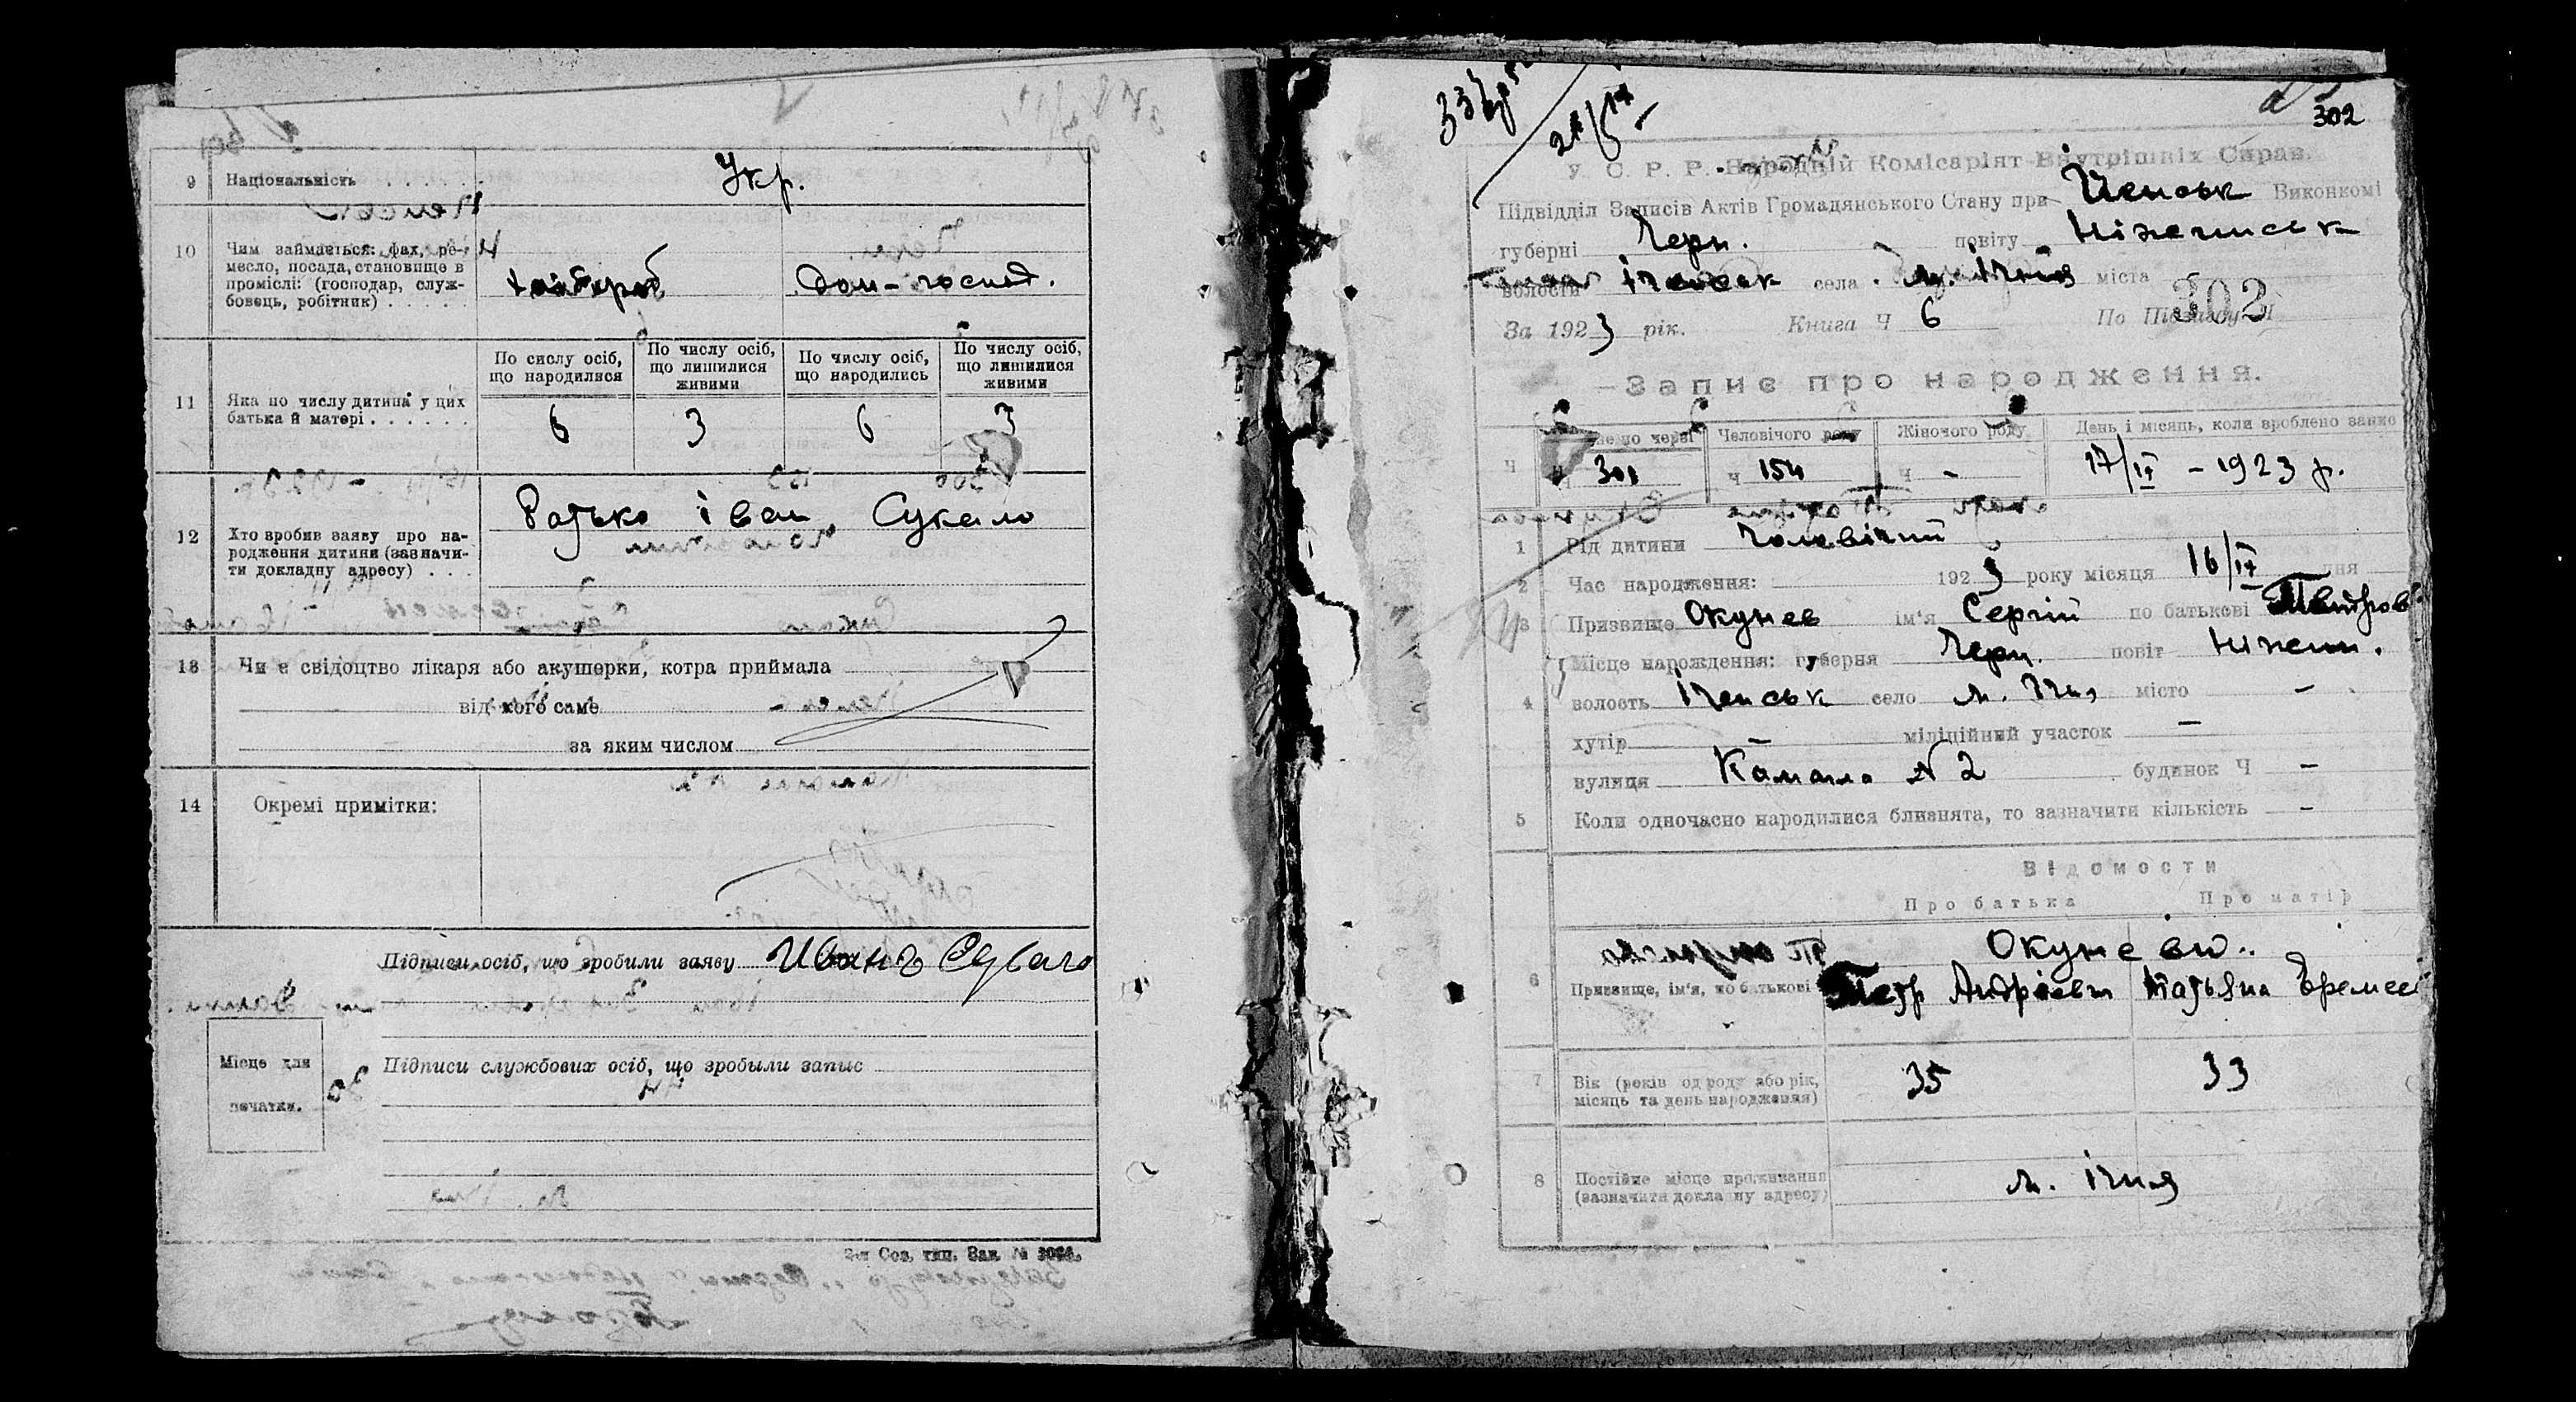 9 Національність . . . . . Укр.
10 Чим займається: фах, ре-
месло, посада, становище в
проміслі: (господар, служ-
бовець, робітник) . . . . .
хлібороб Дом-госпд.
По сислу осіб,
що народилися
По числу осіб,
що лишилися
живими
По числу осіб,
що народились
По числу осіб,
що лишилися
живими
11 Яка по числу дитина у цих
батька й матері . . . . . .
6 3 6 3
12 Хто вробив заяву про на-
родження дитини (зазначи-
ти докладну адресу) . . .
Батько Іван Сукало
13 Чи є свідоцтво лікаря або акушерки, котра приймала
від кого саме
за яким числом
14 Окремі примітки:
Підписи осіб, що зробили заяву Иванъ
Місце для
печатки.
Підписи службових осіб, що зробыли запис
302
У. С. Р. Р. Народній Комісаріят Внутрішніх Справ.
Підвідділ Записів Актів Громадянського Стану при Иченськ Виконкомі
губерні Черн. повіту Ніженськ
волости Іченськ села м. Ічня міста
302
За 1923 рік. Книга Ч 6 По Підвідділу
Запис про народження.
Человічого роду Жіночого роду День і місяць, коли вроблено запис
Ч 301 Ч 154 Ч - 17/IV - 1923 р.
1 Рід дитини Чоловічий
2 Час народження: 1923 року місяця 16/IV дня
3 Призвище Окунев ім'я Сергій по батькові
4 Місце нарождення: губерня Черн. повіт Ніженн.
волость Іченськ село м. Ічня місто -
хутір - міліційний участок -
вулиця Камала № 2 будинок Ч -
5 Коли одночасно народилися близнята, то зазначити кількість -
Відомости
Про батька Про матір
Окуневи
6 Призвище, ім'я, по батькові Петр Андріеви Татьяна Еремее
7 Вік (років од роду або рік,
місяць та день народження)
35 33
8 Постійне місце проживання
(зазначити докладну адресу)
м. Ічня